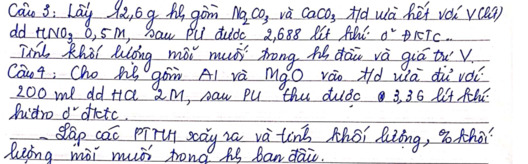 Câu 3: Lấy 12,6g hh gồm Na2CO3 và CaCO3 t/d vừa hết với V (lít)
dd HNO3 0,5M, sau PƯ được 2,688 lít khí ở ĐKTC.
Tính khối lượng mỗi muối trong hh đầu và giá trị V.
Câu 4: Cho hh gồm Al và MgO vào t/d vừa đủ với
200 ml dd HCl 2M, sau PƯ thu được 3,36 lít khí
hiđro ở đktc.
- Lập các PTHH xảy ra và tính khối lượng, % khối
lượng mỗi muối trong hh ban đầu.